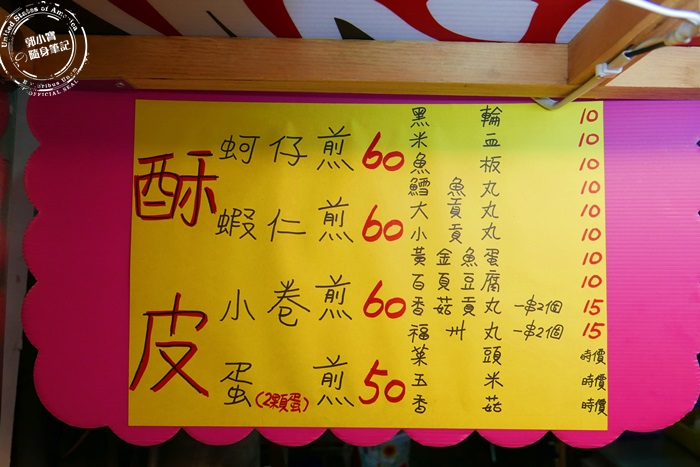 United States of America
郭小寶
隨身筆記
OFFICIAL SEAL
酥皮
蚵仔煎 60
蝦仁煎 60
小卷煎 60
蛋煎 50
(2顆蛋)
黑輪 10
米血 10
魚板 10
鱈魚丸 10
大貢丸 10
小貢丸 10
黃金魚蛋 10
百頁豆腐 10
香菇貢丸 一串2個 15
福州丸 一串2個 15
菜頭 時價
玉米 時價
香菇 時價